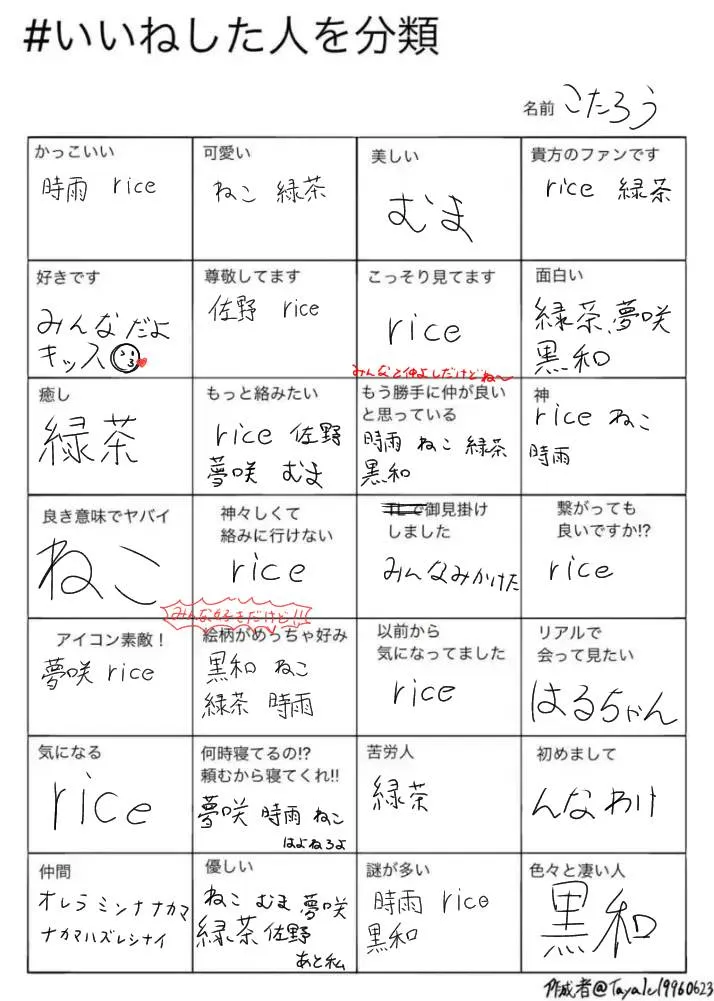 #いいねした人を分類
名前 こたろう
かっこいい
時雨 rice
可愛い
ねこ 緑茶
美しい
むま
貴方のファンです
rice 緑茶
好きです
みんなだよ
キッス
尊敬してます
佐野 rice
こっそり見てます
rice
みんなと仲よしだけどね〜
面白い
緑茶、夢咲
黒和
癒し
緑茶
もっと絡みたい
rice 佐野
夢咲 むま
もう勝手に仲が良い
と思っている
時雨 ねこ 緑茶
黒和
神
rice ねこ
時雨
良き意味でヤバイ
ねこ
神々しくて
絡みに行けない
rice
みんな好きだけど!!!
御見掛け
しました
みんなみかけた
繋がっても
良いですか!?
rice
アイコン素敵！
夢咲 rice
絵柄がめっちゃ好み
黒和 ねこ
緑茶 時雨
以前から
気になってました
rice
リアルで
会って見たい
はるちゃん
気になる
rice
何時寝てるの!?
頼むから寝てくれ!!
夢咲 時雨 ねこ
はよねろよ
苦労人
緑茶
初めまして
んなわけ
仲間
オレラミンナナカマ
ナカマハズレシナイ
優しい
ねこ むま 夢咲
緑茶 佐野
あと私
謎が多い
時雨 rice
黒和
色々と凄い人
黒和
作成者@Tayale19960623